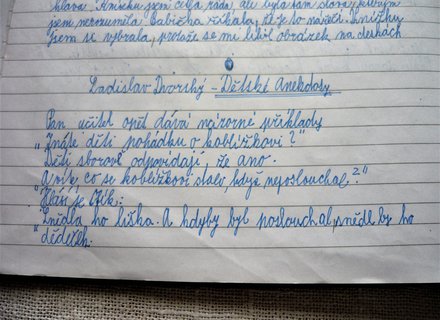 hlava. Knížku jsem četla ráda, ale byla tam slova, kterým
jsem nerozuměla. Babička říkala, že je to nářečí. Knížku
jsem si vybrala, protože se mi líbil obrázek na deskách
Ladislav Dvorský - Dětské Anekdoty
Pan učitel opět dává názorné příklady
"Znáte děti pohádku o koblížkovi?"
Děti sborově odpovídají, že ano.
A víte co se koblížkovi stalo když neposlouchal?"
"Hlásí se
"Snědla ho liška. A kdyby byl poslouchal, snědl by ho
"dědeček.